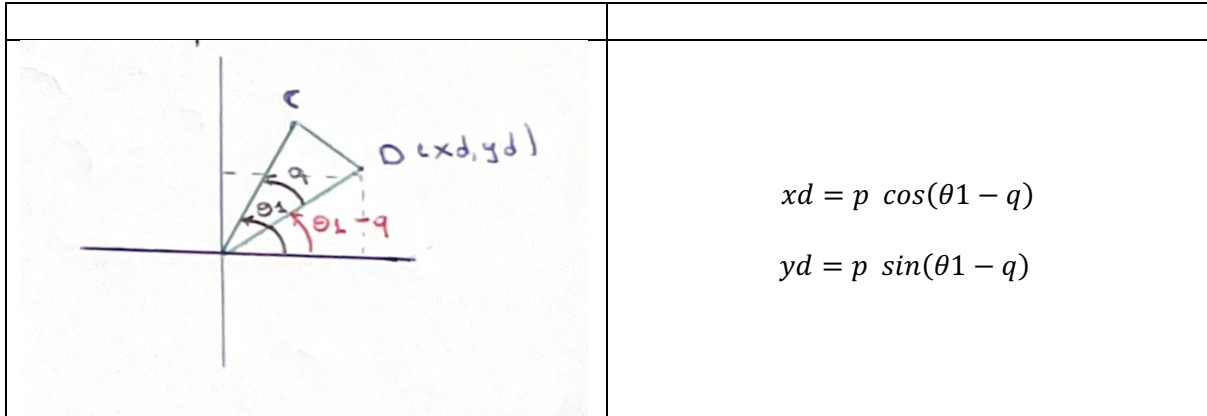 C
D (xd, yd)
q
θ1
θ1-q
xd = p cos(θ1 − q)
yd = p sin(θ1 − q)